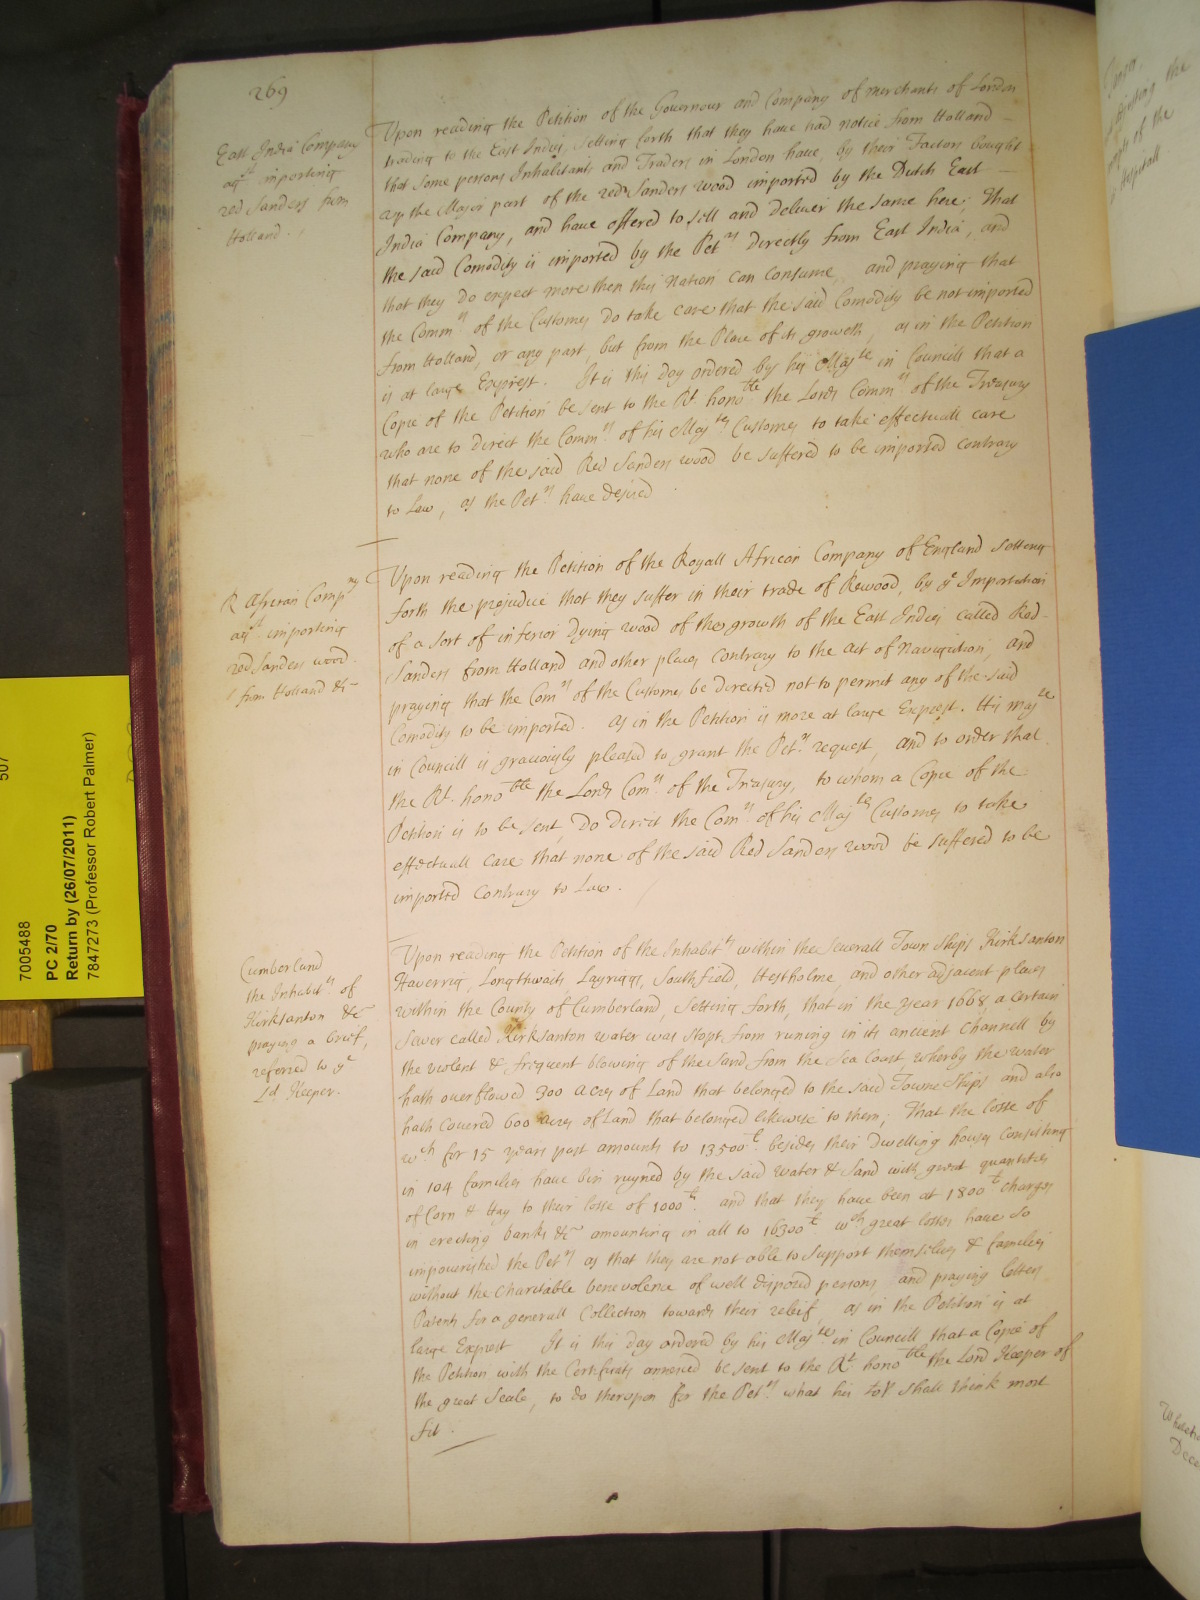 269
East India Company
agt importing
red Sanders from
Holland.
Upon reading the Petition of the Governour and Company of merchants of London
trading to the East Indies, setting forth that they have had notice from Holland
that some persons Inhabitants and Traders in London have, by their Factors bought
up the Major part of the red Sanders wood imported by the Dutch East
India Company, and have offered to sell and deliver the same here; That
the said Comodity is imported by the Petrs Directly from East India, and
that they do expect more then this Nation can Consume, and praying that
the Commrs of the Customes do take care that the said Comodity be not imported
from Holland, or any part, but from the Place of its growth, as in the Petition
is at large Exprest. It is this day ordered by his Majte in Councill that a
Copie of the Petition be sent to the Rt. honoble the Lords Commrs of the Treasury
who are to direct the Commrs of his Majtes Customes to take effectuall care
that none of the said Red Sanders wood be suffered to be imported contrary
to Law, as the Petrs have desired.
R African Compny
agst importing
red Sanders wood.
from Holland &c
Upon reading the Petition of the Royall African Company of England setting
forth the prejudice that they suffer in their trade of Rewood, by ye Importation
of a sort of inferior Dying wood of the growth of the East Indies called Red-
Sanders from Holland and other places contrary to the act of navigation, and
praying that the Comrs of the Customes be directed not to permit any of the said
Comodity to be imported. as in the Petition is more at large Exprest. His Majte
in Councill is graciously pleased to grant the Petrs request, and to order that
the Rt. honoble the Lords Comrs of the Treasury, to whom a Copie of the
Petition is to be sent, Do direct the Comrs of his Majtes Customes to take
effectuall care that none of the said Red Sanders wood be suffered to be
imported Contrary to Law.
Cumberland
the Inhabitts of
Kirksanton &c
praying a brief,
referred to ye
Ld Keeper.
Upon reading the Petition of the Inhabitts within the severall Townships Kirksanton
Haverrig, Longthwaits, Layriggs, Southfield, Hestholme, and other adjacent places
within the County of Cumberland, Setting forth, that in the year 1668, a certain
Sewer called Kirksanton water was stopt from runing in its ancient Channell by
the violent & frequent blowing of the Sand from the Sea Coast, wherby the water
hath overflowed 300 acres of Land that belonged to the said Towne Ships and also
hath Covered 600 acres of Land that belonged likewise to them; That the losse of
wch for 15 years past amounts to 13500l. besides their Dwelling houses consisting
in 104 families have bin ruyned by the said water & Sand with great quantities
of Corn & Hay to their losse of 1000l. and that they have been at 1800l charges
in erecting banks &c amounting in all to 16300l wch great losses have so
impoverished the Petrs as that they are not able to support themselves & families
without the Charitable benevolence of well disposed persons, and praying letters
Patents for a generall Collection towards their releif, as in the Petition is at
large Exprest It is this day ordered by his Majte in Councill that a Copie of
the Petition with the Certificats annexed be sent to the Rt honoble the Lord Keeper of
the great Seale, to do therupon for the Petrs what his Lop shall think most
fit.
507
7005488
PC 2/70
Return by (26/07/2011)
7847273 (Professor Robert Palmer)
the
of the
Hospitall